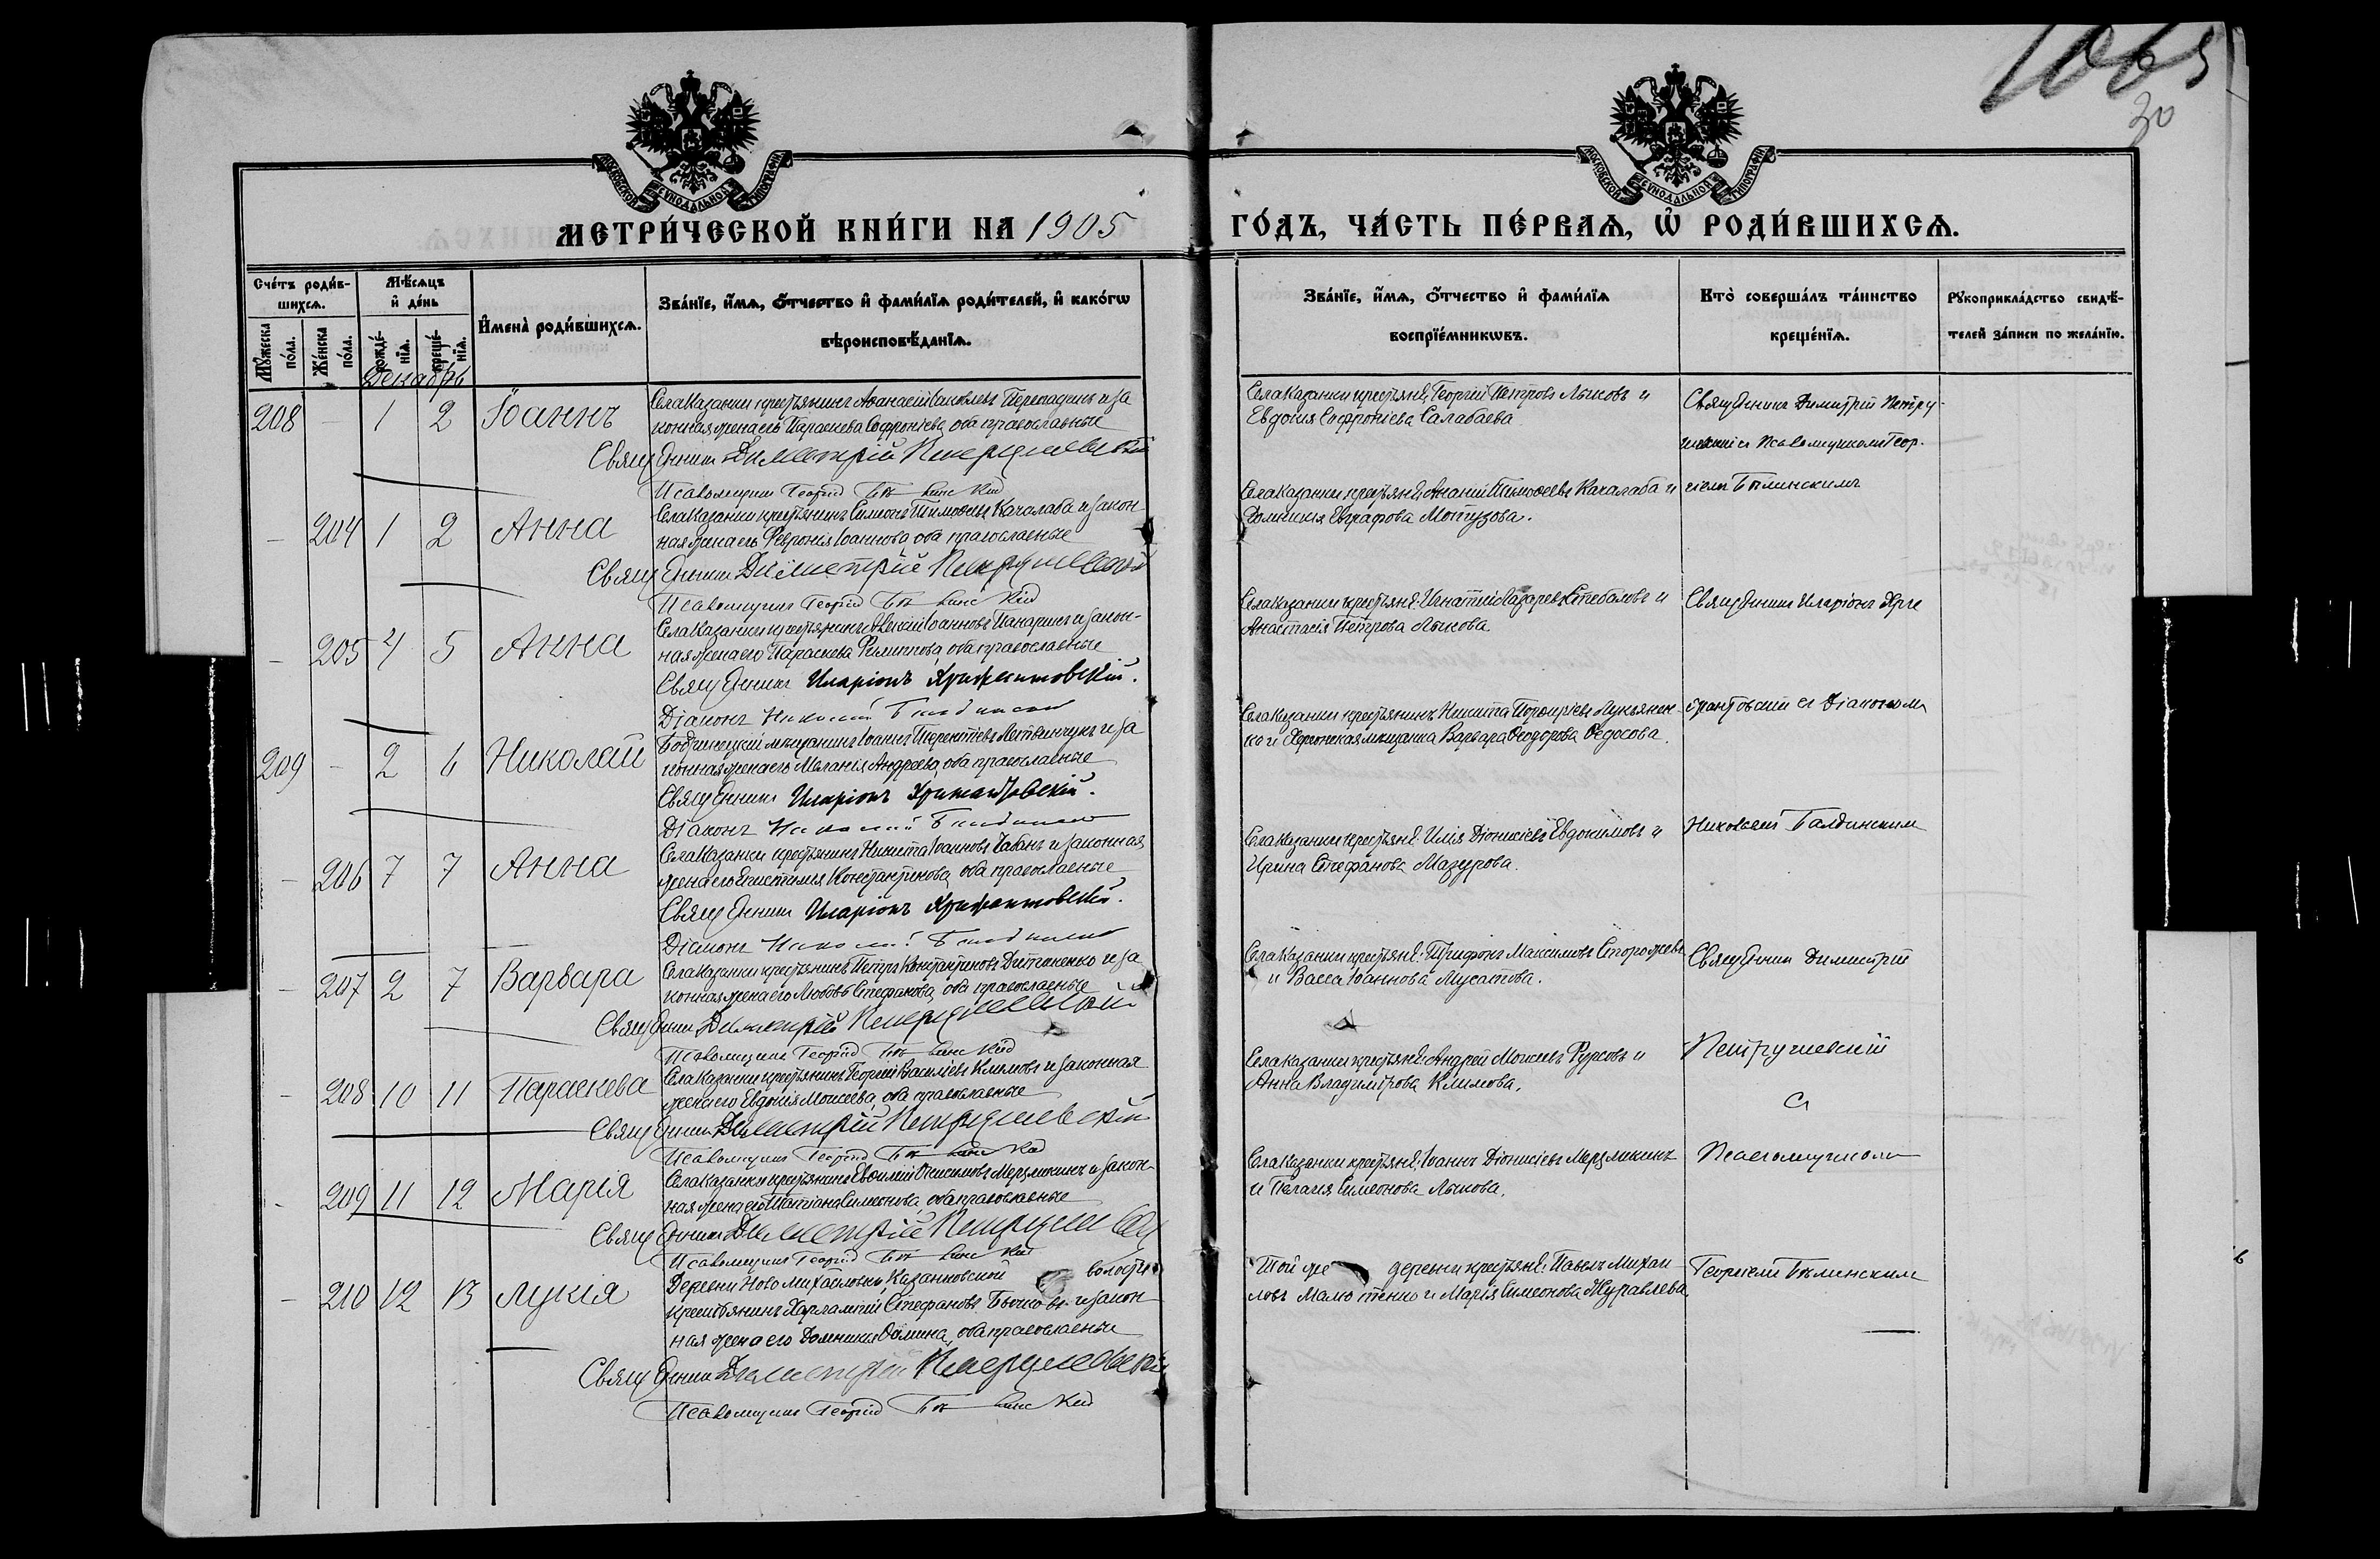 1065
30
МОСКОВСКОЙ СѴНОДАЛЬНОЙ ТИПОГРАФІИ
МОСКОВСКОЙ СѴНОДАЛЬНОЙ ТИПОГРАФІИ
МЕТРИ́ЧЕСКОЙ КНИ́ГИ НА 1905 ГО́ДЪ, ЧА́СТЬ ПЕ́РВАѦ, Ѡ҆ РОДИ́ВШИХСѦ.
Сче́тъ роди́в-
шихсѧ.
Мꙋ́жеска по́ла.
Же́нска по́ла.
Мѣ́сѧцъ
и҆ де́нь
рожде́-
нїѧ.
креще́-
нїѧ.
И҆мена̀ роди́вшихсѧ.
Зва́нїе, и҆́мѧ, ѻ҆́тчество и҆ фами́лїѧ роди́телей, и҆ како́гѡ
вѣроисповѣ́данїѧ.
Зва́нїе, и҆́мѧ, ѻ҆́тчество и҆ фами́лїѧ
воспрїе́мникѡвъ.
Кто̀ соверша́лъ та́инство
креще́нїѧ.
Рꙋкоприкла́дство свидѣ́-
телей за́писи по жела́нїю.
Декабрь
208 - 1 2 Іоаннъ
Села Казанки крестьянинъ Аѳанасій Іаковлевъ и за
конная жена его Параскева Софроніева, оба православные
Священникъ Димитрій Петрушевскій
Псаломщикъ Георгій Бѣлинскій
Села Казанки крестьяне: Георгій Петровъ Лысковъ и
Евдокія Софроніева Салабаева
Священникъ Димитрій Петру-
шевскій съ Псаломщикомъ Геор-
- 204 1 2 Анна
Села Казанки крестьянинъ Симеонъ Тимоѳеевъ Качалаба и закон
ная жена его Февронія Іоаннова, оба православные
Священникъ Димитрій Петрушевскій
Псаломщикъ Георгій Бѣлинскій
Села Казанки крестьяне: Ананій Тимоѳеевъ Качалаба и
Домникія Евграфова Мотузова.
гіемъ Бѣлинскимъ
- 205 4 5 Анна
Села Казанки крестьянинъ Іоанновъ Панаринъ и закон-
ная жена его Параскева Филиппова, оба православные
Священникъ Иларіонъ
Діаконъ Николай Балдинскій
Села Казанки крестьяне: Игнатій Лазаревъ и
Анастасія Петрова Лыскова
Священникъ Иларіонъ
209 - 2 6 Николай
Бобринецкій мѣщанинъ Іоаннъ Терентіевъ Литвинчукъ и за
конная жена его Меланія Андреева, оба православные
Священникъ Иларіонъ
Діаконъ Николай Балдинскій
Села Казанки крестьянинъ Никита Порфиріевъ Лукьянен-
ко и Херсонская мѣщанка Варвара Ѳеодорова Ѳедосова.
съ Діакономъ
- 206 7 7 Анна
Села Казанки крестьянинъ Никита Іоанновъ Чабанъ и законная
жена его Епистимія Константинова, оба православные
Священникъ Иларіонъ
Діаконъ Николай Балдинскій
Села Казанки крестьяне: Илія Діонисіевъ Евдокимовъ и
Ирина Стефанова Мазурова.
Николаемъ Балдинскимъ
- 207 2 7 Варвара
Села Казанки крестьянинъ Петръ Константиновъ Дитиненко и за
конная жена его Любовь Стефанова, оба православные
Священникъ Димитрій Петрушевскій
Псаломщикъ Георгій Бѣлинскій
Села Казанки крестьяне: Трифонъ Максимовъ Сторожевъ
и Васса Іоаннова Мусатова.
Священникъ Димитрій
- 208 10 11 Параскева
Села Казанки крестьянинъ Георгій Василіевъ Климовъ и законная
жена его Евдокія Моисеева, оба православные
Священникъ Димитрій Петрушевскій
Псаломщикъ Георгій Бѣлинскій
Села Казанки крестьяне: Андрей Моисеевъ Фурсовъ и
Анна Владимірова Климова.
Петрушевскій
съ
- 209 11 12 Марія
Села Казанки крестьянинъ Евѳимій Онисимовъ Мерзликинъ и закон-
ная жена его Татіана Симеонова, оба православные
Священникъ Димитрій Петрушевскій
Псаломщикъ Георгій Бѣлинскій
Села Казанки крестьяне: Іоаннъ Діонисіевъ Мерзликинъ
и Пелагія Симеонова Лыскова.
Псаломщикомъ
- 210 12 13 Лукія
Деревни Ново Михайловки, Казанковской волости
крестьянинъ Харлампій Стефановъ Бычковъ и закон
ная жена его Домникія Ѳомина, оба православные
Священникъ Димитрій Петрушевскій
Псаломщикъ Георгій Бѣлинскій
Той же деревни крестьяне: Павелъ Михаи
ловъ Малютенко и Марія Симеонова Журавлева
Георгіемъ Бѣлинскимъ